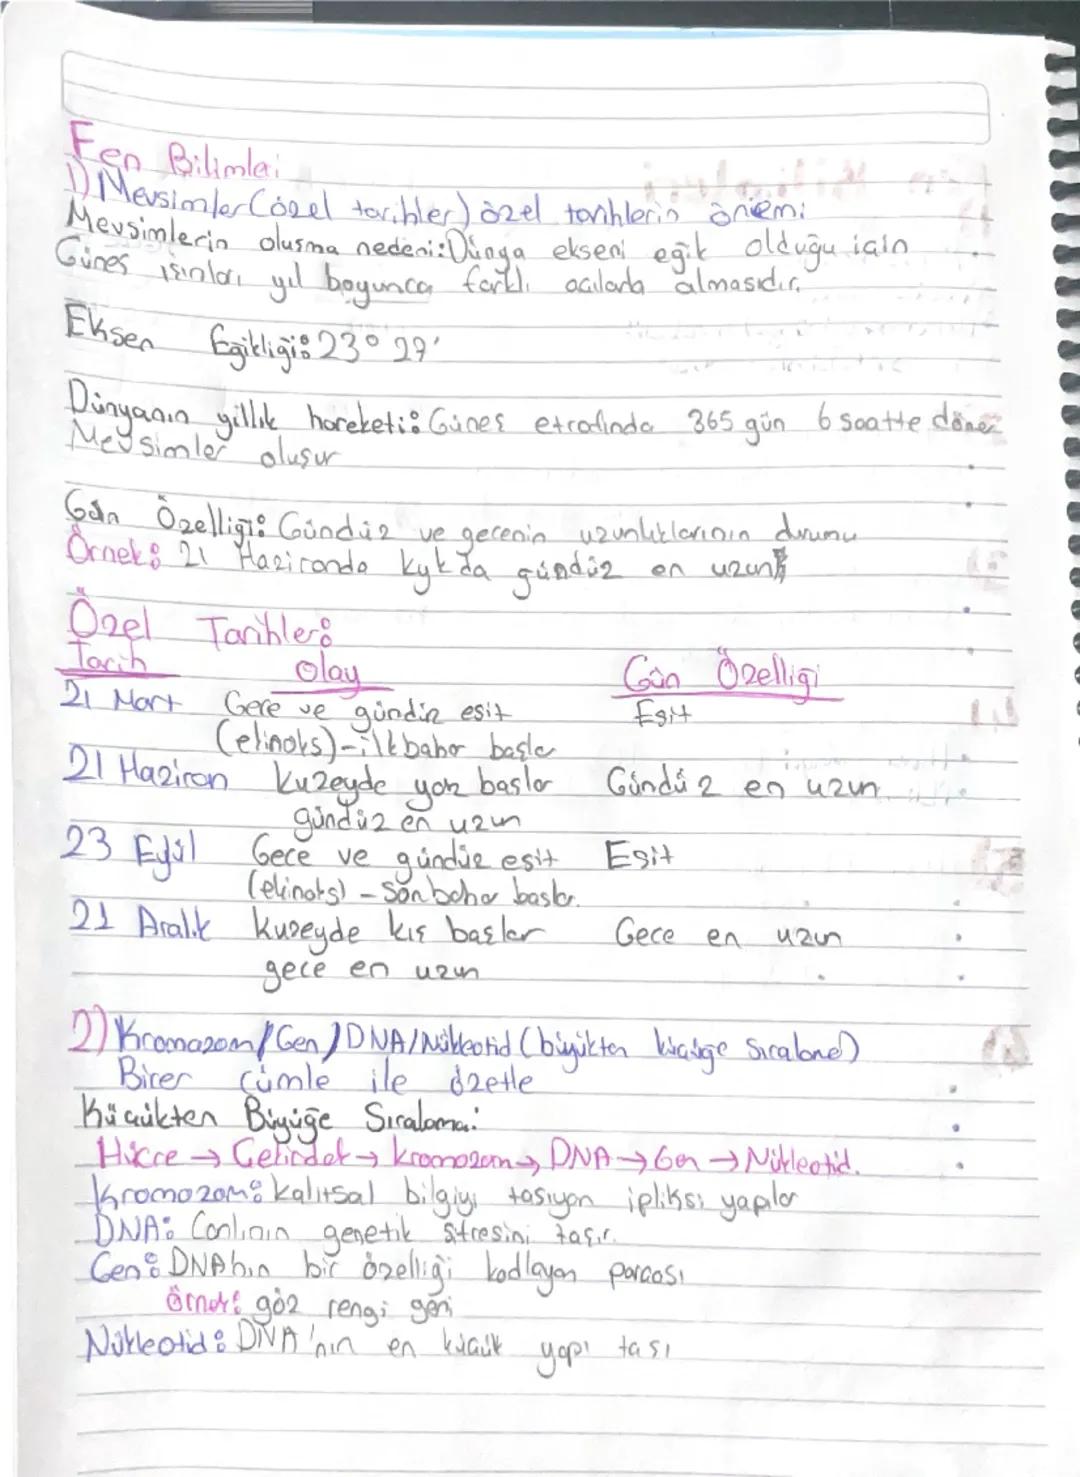 Fen Bilimleri
1) Mevsimler (özel tarihler) özel tarihlerin önemi
Mevsimlerin olusma nedeni: Dünya ekseni eğik olduğu için
Günes ışınları yıl boyunca farklı açılarla almasıdır.
Eksen Egikliği: 23° 27'
Dünyanın yıllık hareketi: Günes etrafında 365 gün 6 saatte döner
Mevsimler oluşur
Gün Özelliği: Gündüz ve gecenin uzunluklarının durumu
Örnek: 21 Haziranda kyk da gündüz en uzun
Özel Tarihler:
Tarih Olay Gün Özelliği
21 Mart Gece ve gündüz esit Esit
(ekinoks)-ilkbahar başlar
21 Haziran kuzeyde yaz başlar Gündüz en uzun
gündüz en uzun
23 Eylül Gece ve gündüz esit Esit
(ekinoks) - Sonbahar başlar.
21 Aralık kuzeyde kış başlar Gece en uzun
gece en uzun
2) Kromazom/Gen/DNA/Nükleotid (büyükten küçüğe Sıralane)
Birer cümle ile özetle
Küçükten Büyüğe Sıralama:
Hücre → Çekirdek → kromozom → DNA → Gen → Nükleotid.
Kromozom: kalıtsal bilgiyi tasıyan ipliksi yapılar
DNA: Canlının genetik sifresini taşır.
Gen: DNA'nın bir özelliği kodlayan parçası
örnek: göz rengi geni
Nükleotid: DNA'nın en küçük yapı tası